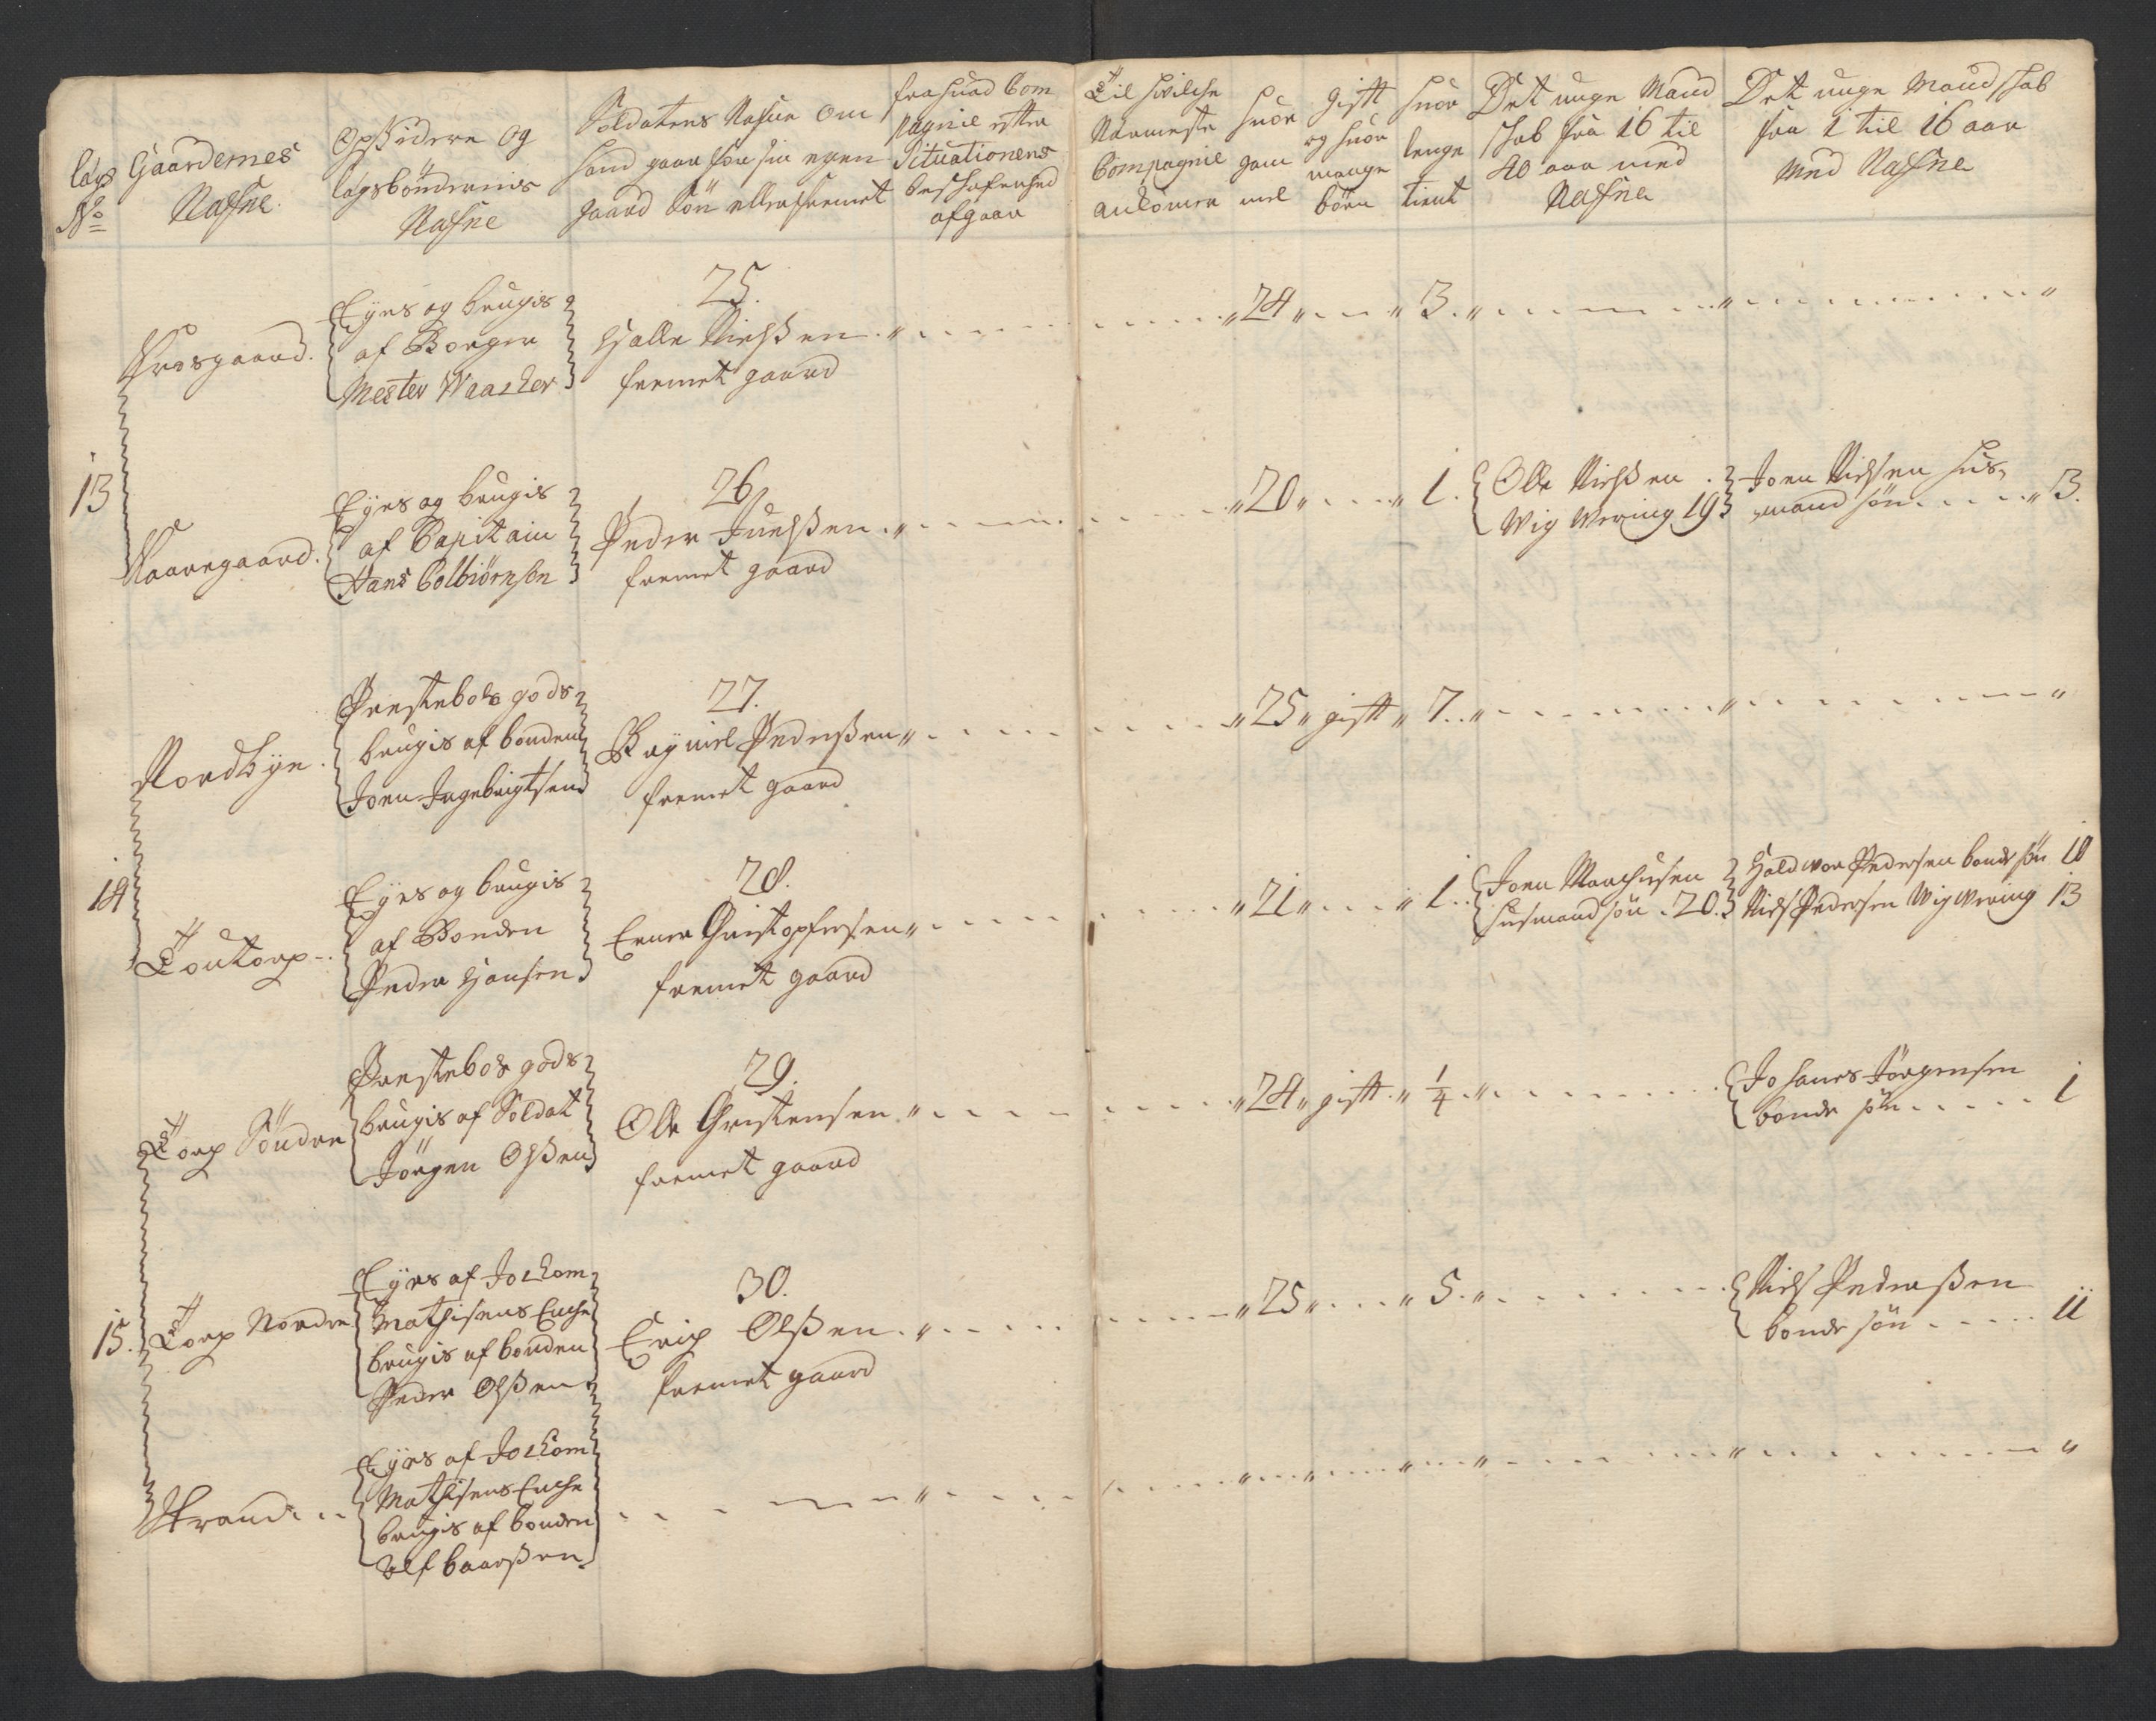 Lags
No
Gaardernes
Nafne
Opsidere og
lagsböndernis
Nafne
Soldatens Nafne Om
hand gaar for sin egen
gaard Sön eller fremet
fra huad Com
pagnie efter
Situationens
beschafenhed
afgaar
Til hvilche
Nærmeste
Compagnie
ankomer
huor
gam
mel
gift
og huor
mange
börn
huor
lenge
tient
Det unge Mand
schab fra 16 til
40 aar med
Nafne
Det unge Mandschab
fra 1 til 16 aar
med Nafne
13
Aarsgaard.
Eyes og brugis
af Borger
Mester Waasker
25.
Halle Nielßen
fremet gaard
24
3.
Naaregaard.
Eyes og brugis
af Capitain
Hans Colbiörnsen
26
Peder Juelßen
fremet gaard
20
1.
Olle Nielßen
Wig Wering 19
Joen Nielsen hus,
mand sön 3.
14
Nordbye.
Prestebols gods
brugis af bonden
Joen Ingebrigtsen
27.
Peder sen
fremet gaard
25 gift 7.
Toutorp
Eyes og brugis
af Bonden
Peder Hansen
28.
Ener Christophersen
fremet gaard
21
1.
Joen Marchusen
husmand sön 20.
Haldwor Pedersen bonde sön 10
Niels Pedersen Wig Wering 13
15.
Torp Söndre
Prestebols gods
brugis af Soldat
Jörgen Olßen
29.
Olle Christensen
fremet gaard
24 gift 1/4
Johanes Jörgensen
bonde sön 1
Torp Nordre
Eyes af Jockom
Mathisens Encke
brugis af bonden
Peder Olßen
30.
Erich Olßen
fremet gaard
25
5.
Niels Pederßen
bonde sön 11
Strand
Eyes af Jockom
Mathisens Encke
brugis af bonden
Baarßen